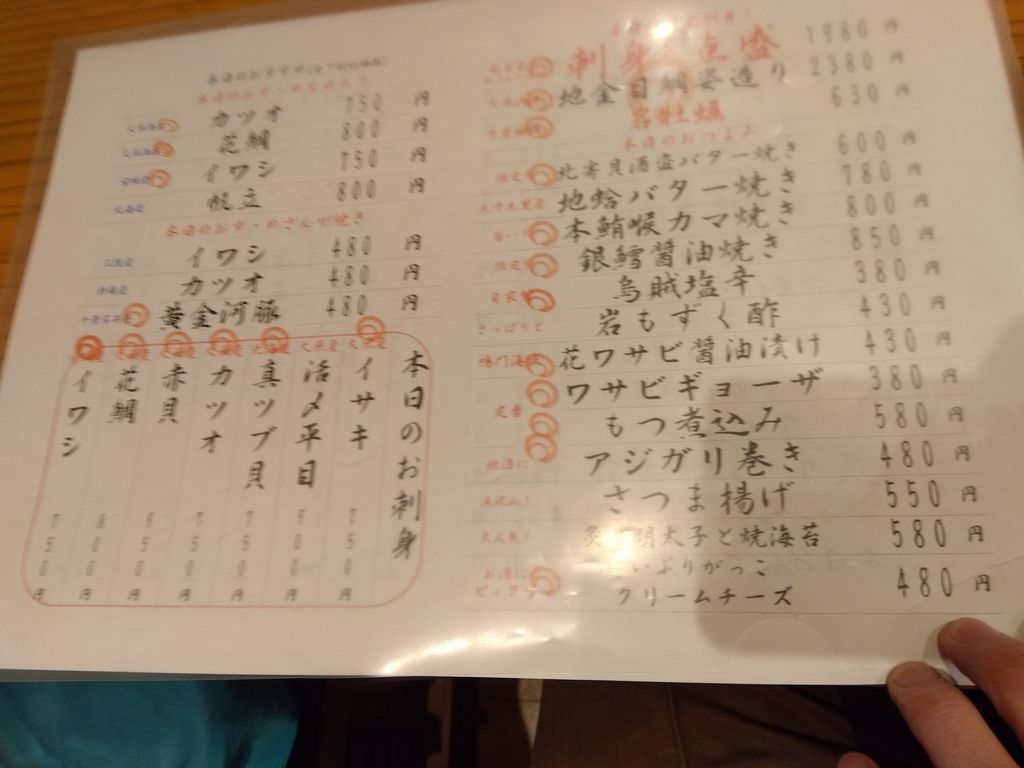 本日のおすすめ(全て税込価格)
カツオ 750 円
花鯛 800 円
イワシ 750 円
帆立 800 円
イワシ 480 円
カツオ 480 円
黄金河豚 480 円
本日のお刺身
イサキ 750円
活〆平目 900円
真ツブ貝 750円
カツオ 750円
赤貝 950円
花鯛 800円
イワシ 750円
刺身 点盛 1980 円
地金目鯛姿造り 2380 円
岩牡蠣 630 円
本日のおつまみ
限定 北寄貝酒盗バター焼き 600 円
九十九里産 地蛤バター焼き 780 円
旨い! 本鮪喉カマ焼き 800 円
限定! 銀鱈醤油焼き 850 円
自家製 烏賊塩辛 380 円
さっぱりと 岩もずく酢 430 円
花ワサビ醤油漬け 430 円
定番 ワサビギョーザ 380 円
もつ煮込み 580 円
地酒に アジガリ巻き 480 円
さつま揚げ 550 円
大人気! 明太子と焼海苔 580 円
お酒にピッタリ いぶりがっこ
クリームチーズ 480 円